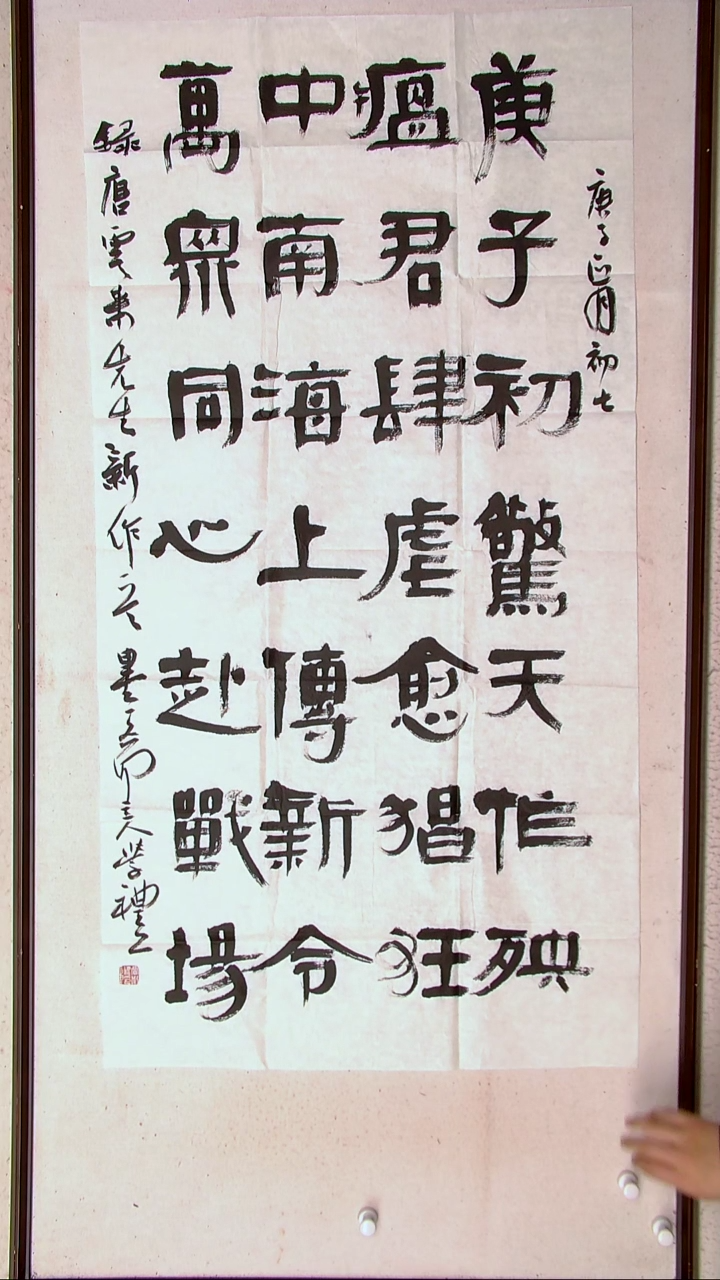 庚子正月初七
庚子初驚天作殃
瘟君肆虐愈猖狂
中南海上傳新令
萬眾同心赴戰場
錄唐雲來先生新作 學禮